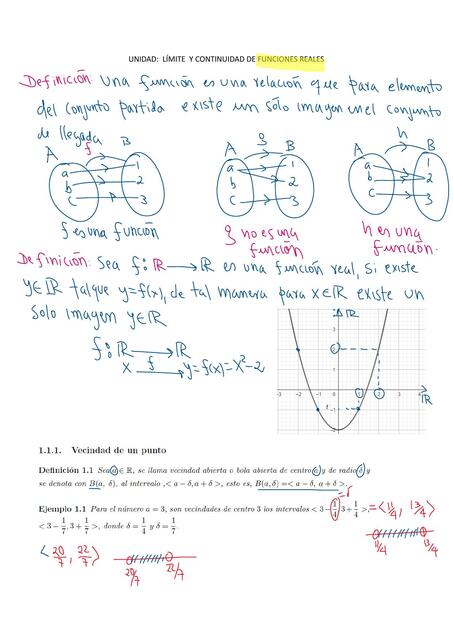 UNIDAD: LÍMITE Y CONTINUIDAD DE FUNCIONES REALES
Definición Una función es una relación que para elemento
del conjunto partida existe un sólo imagen en el conjunto
de llegada
f g h
A B A B A B
a 1 a 1 a 1
b 2 b 2 b 2
c 3 c 3 c 3
f es una función g no es una función h es una función.
Definición: Sea f: ℝ → ℝ es una función real, si existe
y∈ℝ tal que y=f(x), de tal manera para x∈ℝ existe un
solo imagen y∈ℝ
f: ℝ → ℝ
x f y=f(x)=x²-2
ℝ
3
2
1
-3 -2 -1 0 1 2 3 4 ℝ
1.1.1. Vecindad de un punto
Definición 1.1 Sea a ∈ ℝ, se llama vecindad abierta o bola abierta de centro a y de radio δ y
se denota con B(a, δ), al intervalo ,< a − δ, a + δ >, esto es, B(a, δ) =< a − δ, a + δ >.
=r
Ejemplo 1.1 Para el número a = 3, son vecindades de centro 3 los intervalos < 3 − 1/4, 3 + 1/4 >, =<11/4, 13/4>
< 3 − 1/7, 3 + 1/7 >, donde δ = 1/4 y δ = 1/7.
11/4 13/4
<20/7, 22/7>
20/7 22/7